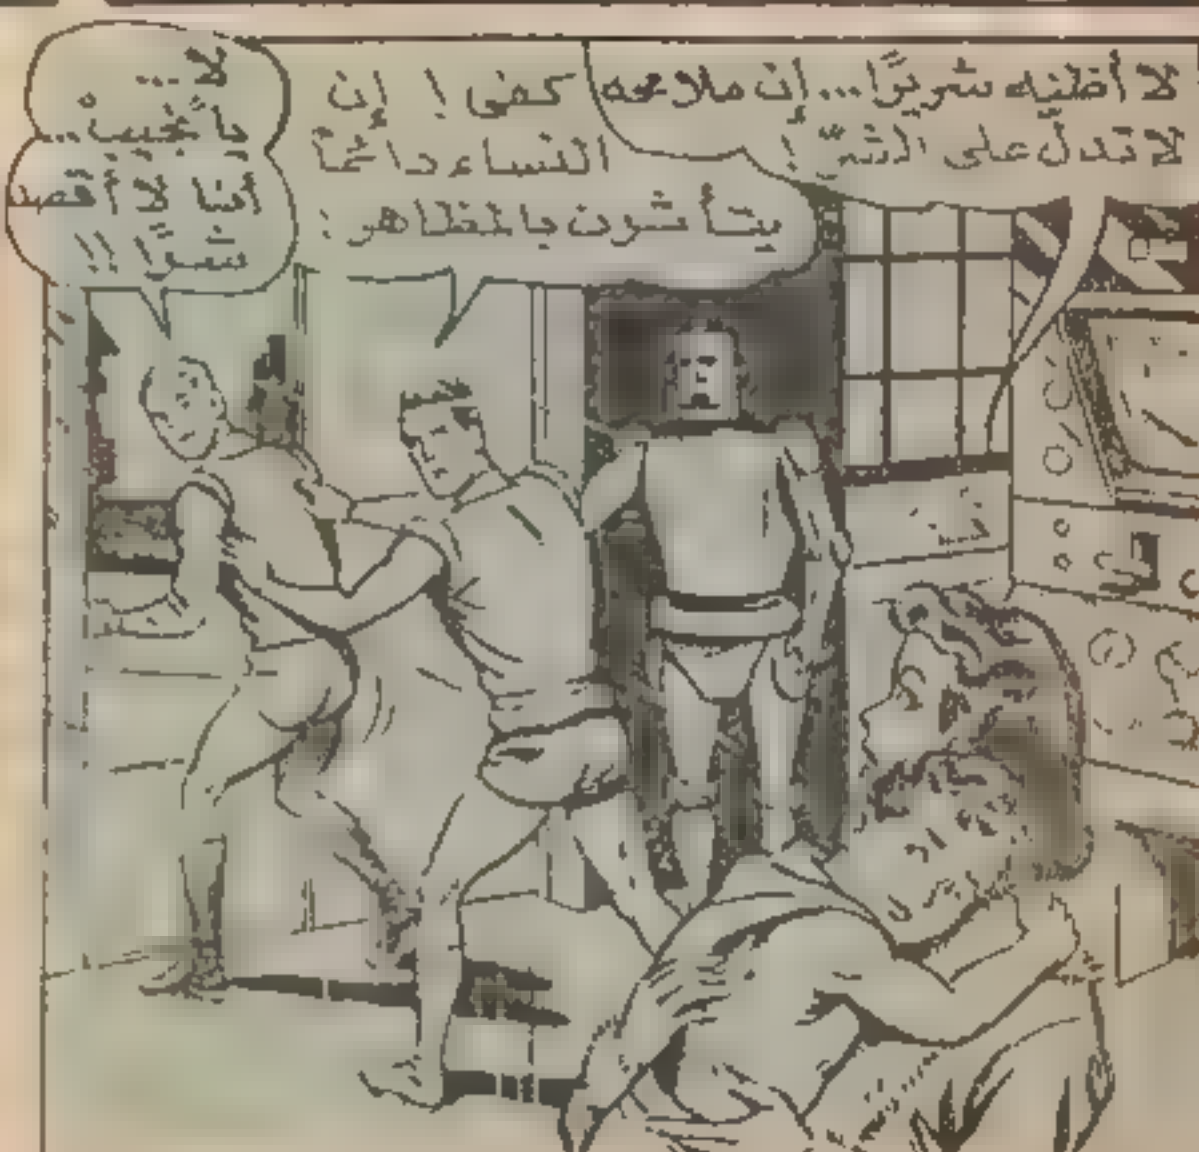 لا أظنه شريرًا... إن ملامحه
لا تدل على الشر !
كفى ! إن
النساء دائمًا
يتأثرون بالمظاهر :
لا...
يا نجيب...
أنا لا أقصد
سوءًا !!